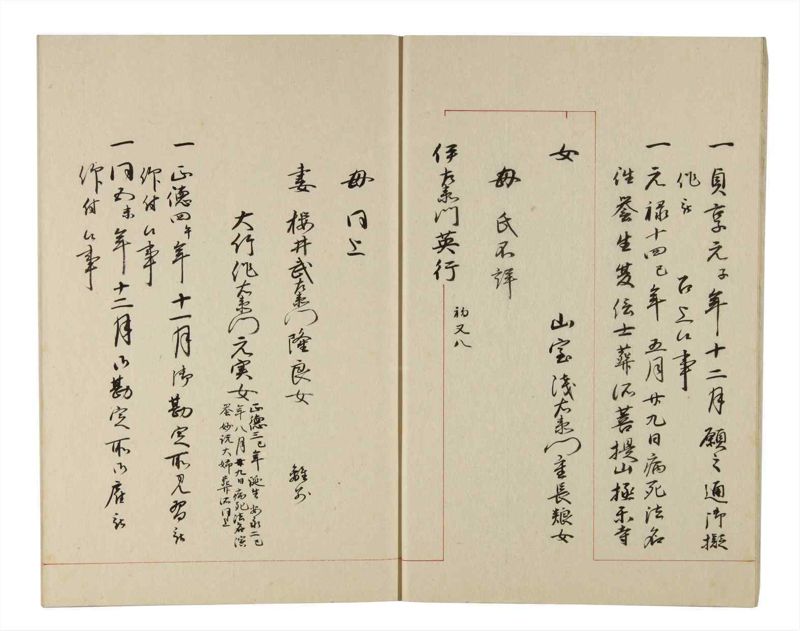 一 貞享元子年十二月願之通御擬
作被 召上候事
一 元禄十四巳年五月廿九日病死法名
性誉生安信士葬所菩提山極楽寺
女
山室浅右衛門重長娘女
母 氏不詳
伊右衛門英行
初又八
母 同上
妻 桜井武右衛門隆良女 離別
大竹作右衛門元実女
正徳三巳年誕生安永二巳
年八月廿九日病死法名演
誉妙説大姉葬所同上
一 正徳四午年十一月御勘定所見習被
仰付候事
一 同五未年十二月御勘定所御雇被
仰付候事